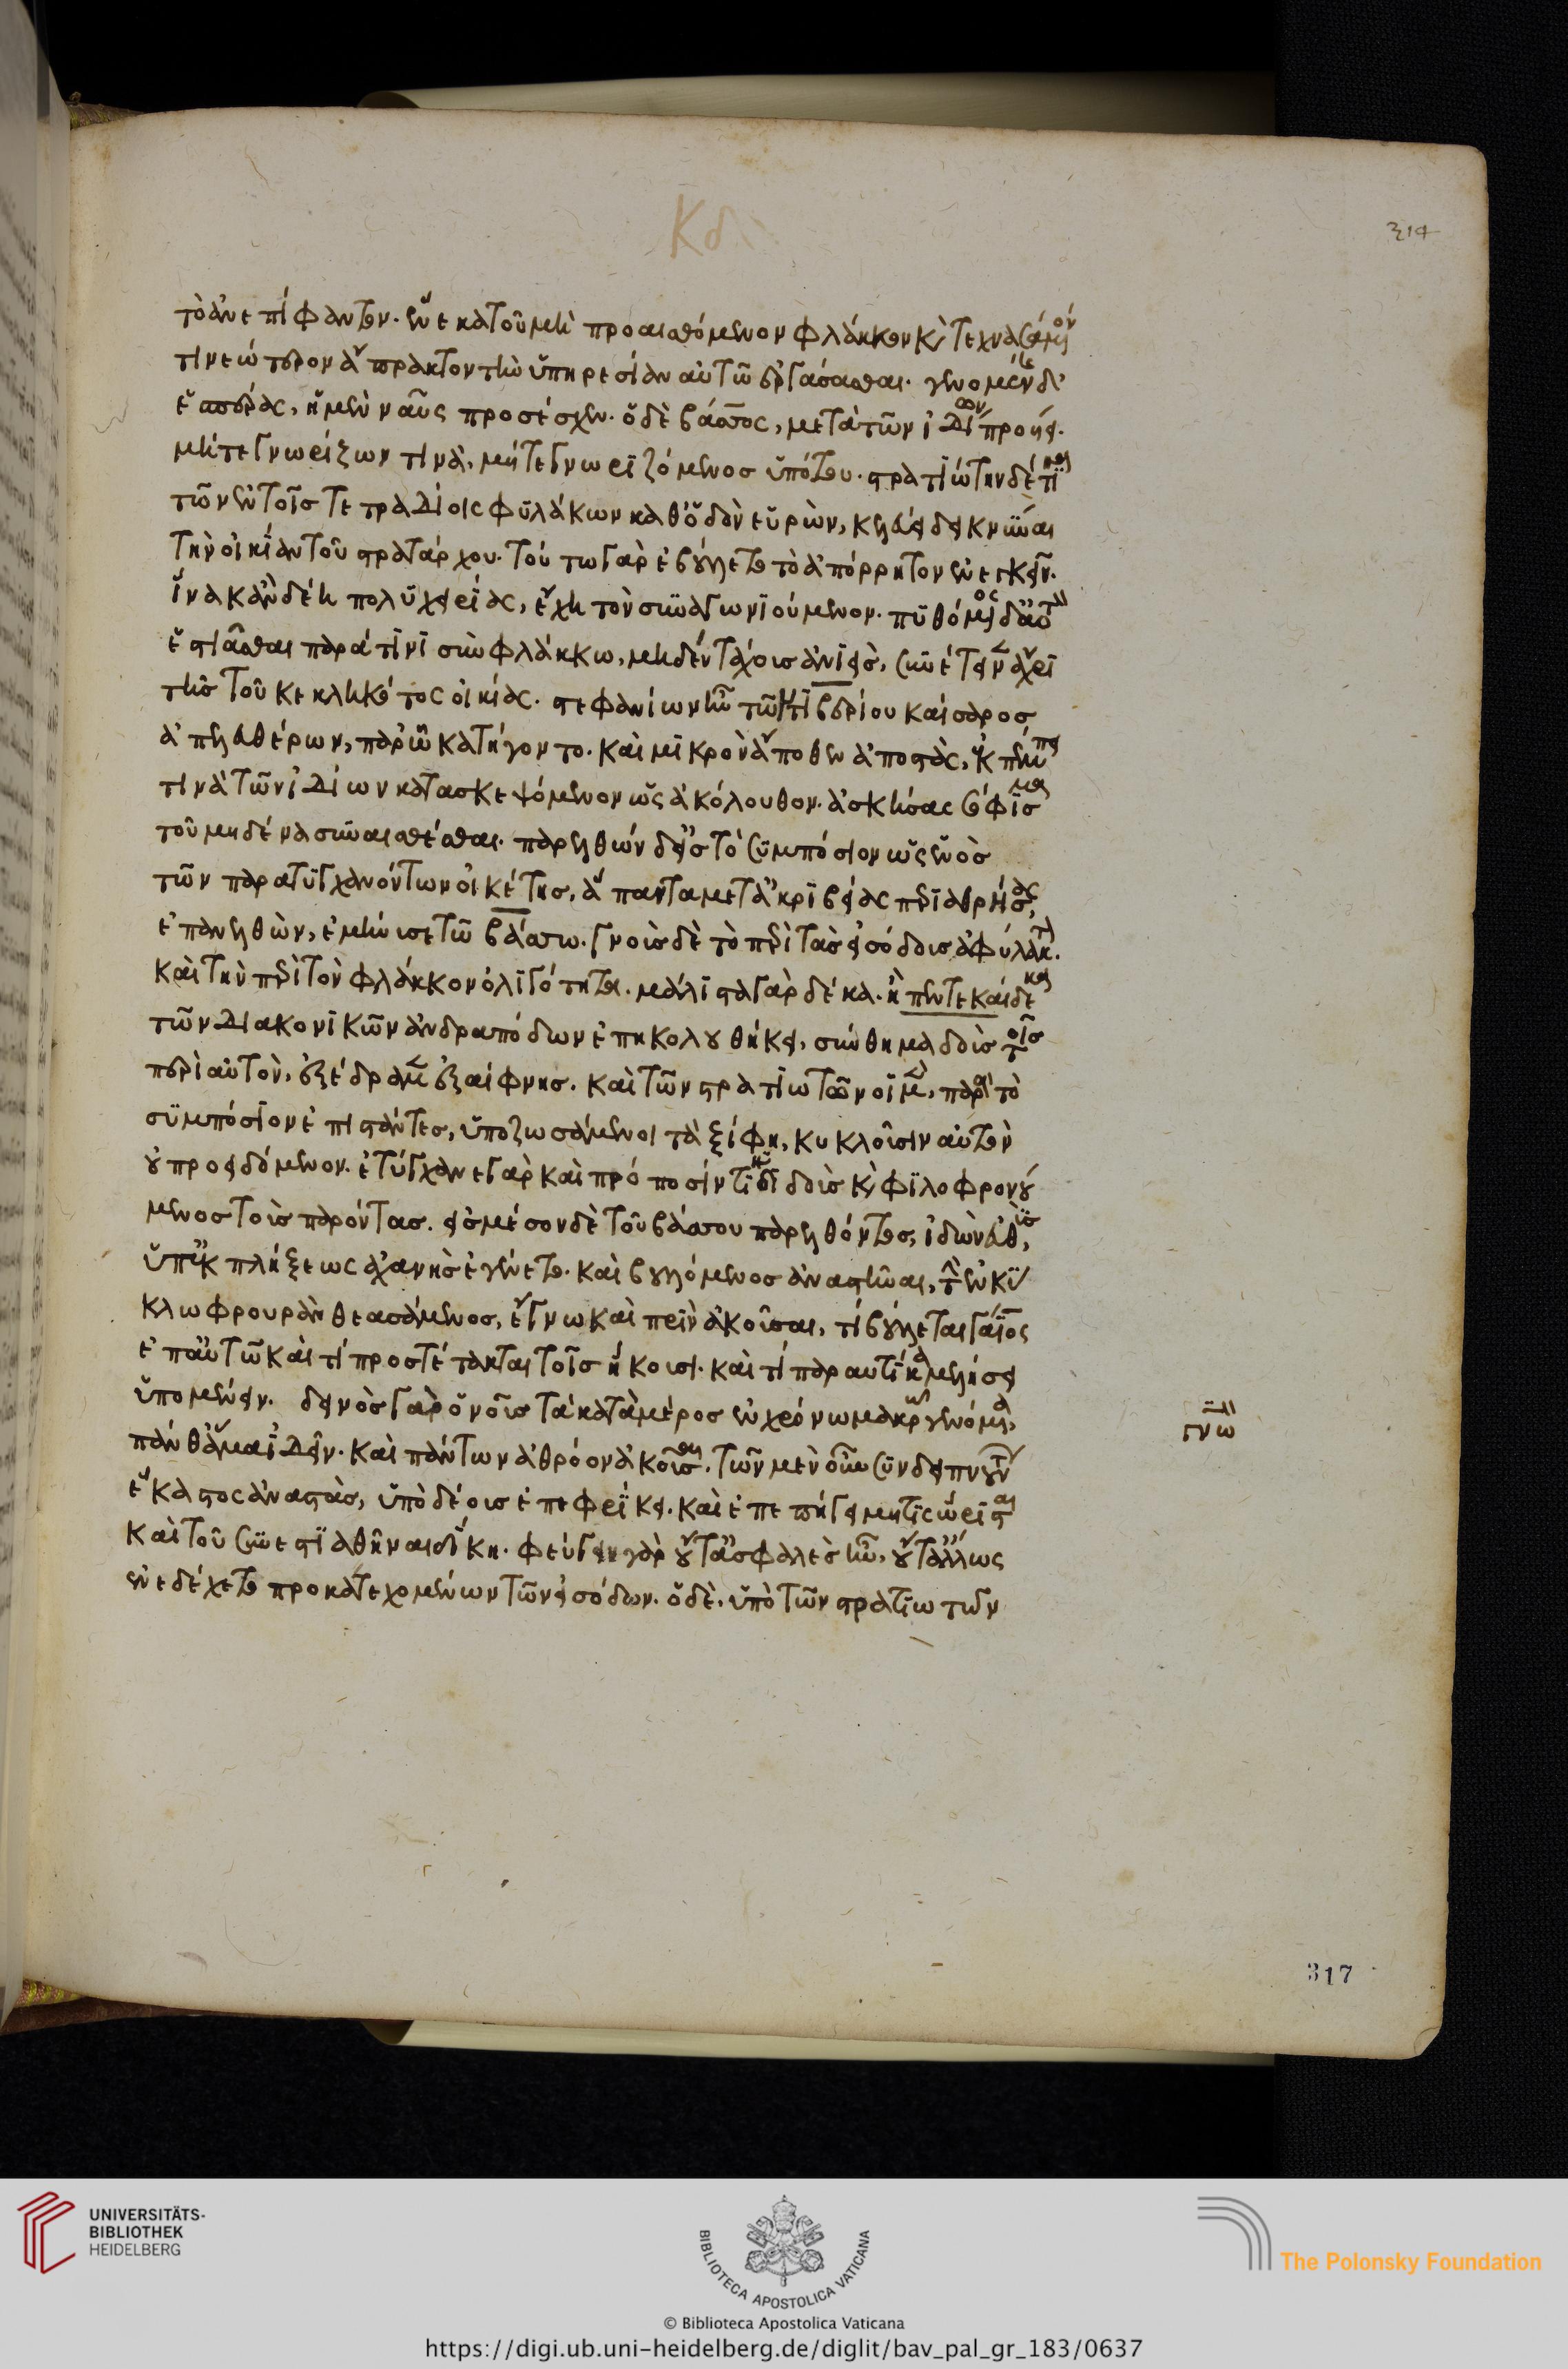 τὸ ἀνεπίφαντον· ἕνεκα τοῦ μὴ προαισθόμενον φλάκκον κ(αὶ) τεχνασάμενον
τι νεώτερον ἄπρακτον τὴν ὑπηρεσίαν αὐτῶ ἐργάσασθαι. γενομένης δὲ
ἑσπέρας, ἡ μὲν ναῦς προσέσχεν. ὁ δὲ βάσσος, μετὰ τῶν ἰδίων προήει.
μήτε γνωρίζων τινὰ, μήτε γνωριζόμενος ὑπό του. στρατιώτην δέ τινα
τῶν ἐν τοῖς τετραδίοις φυλάκων καθ' ὁδὸν εὑρὼν, κελεύει δεικνύναι
τὴν οἰκίαν τοῦ στρατάρχου. τούτω γὰρ ἐβούλετο τὸ ἀπόρρητον ἐνεγκεῖν.
ἵνα κἂν δέη πολυχειρίας, ἔχη τὸν συναγωνιούμενον. πυθόμενος δ' αὐτὸν
ἑστιᾶσθαι παρά τινι σὺν φλάκκω, μηδὲν τάχους ἀνιεὶς, συνέτεινεν ἄχρι
τῆς τοῦ κεκληκότος οἰκίας. στεφανίων ἦν τῶν τιβερίου καίσαρος
ἀπελευθέρων, παρ' ὧ κατήγοντο. καὶ μικρὸν ἄποθεν ἀποστὰς, ἐκπέμπει
τινὰ τῶν ἰδίων κατασκεψόμενον ὡς ἀκόλουθον. ἀσκήσας σόφισμα
τοῦ μηδένα συναισθέσθαι. παρελθὼν δ' εἰς τὸ συμπόσιον ὡς ἑνὸς
τῶν παρατυγχανόντων οἰκέτης, ἅπαντα μετ' ἀκριβείας περιαθρήσας,
ἐπανελθὼν, ἐμήνυσε τῶ βάσσω. γνοὺς δὲ τὸ περὶ τὰς εἰσόδους ἀφύλακτον.
καὶ τὴν περὶ τὸν φλάκκον ὀλιγότητα. μάλιστα γὰρ δέκα ἢ πεντεκαίδεκα
τῶν διακονικῶν ἀνδραπόδων ἐπηκολουθήκει, σύνθημα δοὺς τοῖς
περὶ αὐτὸν, ἐξέδραμεν ἐξαίφνης. καὶ τῶν στρατιωτῶν οἱ μὲν, παρὰ τὸ
συμπόσιον ἐπιστάντες, ὑπεζωσμένοι τὰ ξίφη, κυκλοῦσιν αὐτὸν
οὐ προειδόμενον. ἐτύγχανε γὰρ καὶ πρόποσίν τινι διδοὺς κ(αὶ) φιλοφρονού
μενος τοὺς παρόντας. εἰς μέσον δὲ τοῦ βάσσου παρελθόντος, ἰδὼν εὐθὺς,
ὑπ' ἐκπλήξεως ἀχανὴς ἐγένετο. καὶ βουλόμενος ἀναστῆναι, τὴν ἐν κύ
κλω φρουρὰν θεασάμενος, ἔγνω καὶ πρὶν ἀκοῦσαι, τί βούλεται γάϊος
ἐπ' αὐτῶ καὶ τί προστέτακται τοῖς ἥκουσι. καὶ τί παραυτίκα μελλήσει
ὑπομένειν. δεινὸς γὰρ ὁ νοῦς τὰ κατὰ μέρος ἐν χρόνω μακρῶ γενόμενα,
πάνθ' ἅμα ἰδεῖν. καὶ πάντων ἀθρόον ἀκοῦσαι. τῶν μὲν οὖν συνδειπνούντων
ἕκαστος ἀναστὰς, ὑπὸ δέους ἐπεφρίκει. καὶ ἐπεπήγει μή τις ὥρισται
καὶ τοῦ συνεστιαθῆναι δίκη. φεύγειν γὰρ οὔτ' ἀσφαλὲς ἦν, οὔτ' ἄλλως
ἐνεδέχετο προκατεχομένων τῶν εἰσόδων. ὁ δὲ, ὑπὸ τῶν στρατιωτῶν
γνω
314
317
UNIVERSITÄTS-
BIBLIOTHEK
HEIDELBERG
BIBLIOTECA APOSTOLICA VATICANA
The Polonsky Foundation
© Biblioteca Apostolica Vaticana
https://digi.ub.uni-heidelberg.de/diglit/bav_pal_gr_183/0637